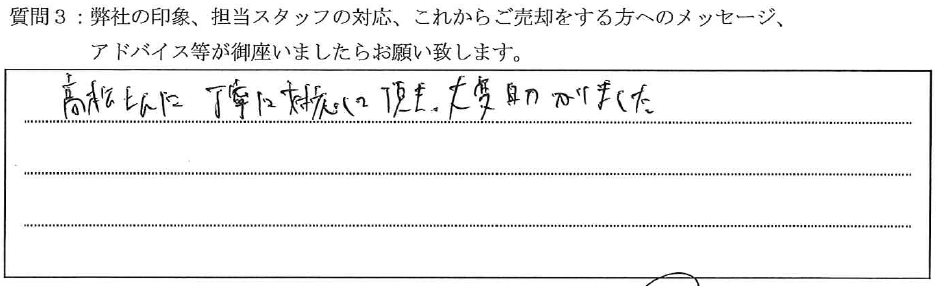 質問３：弊社の印象、担当スタッフの対応、これからご売却をする方へのメッセージ、
アドバイス等が御座いましたらお願い致します。
高松さんに 丁寧に対応して頂き、大変助かりました